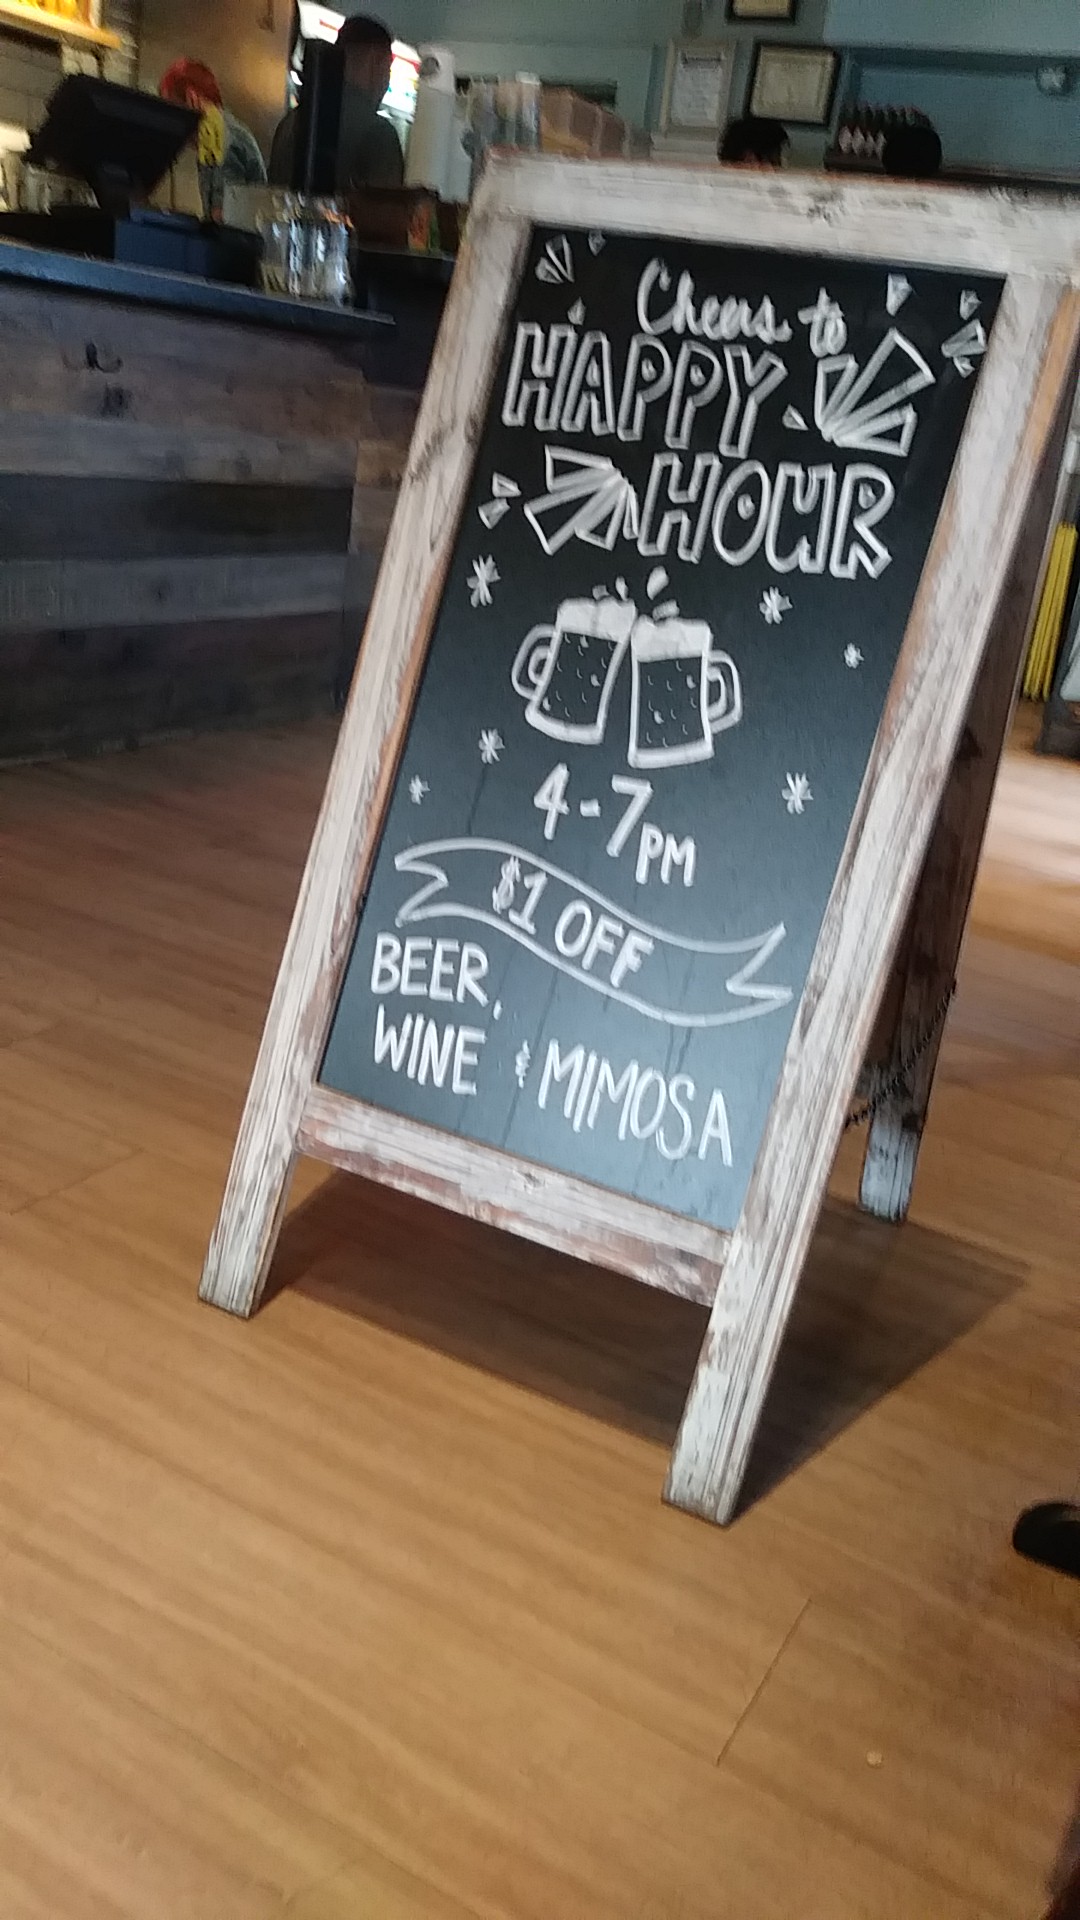 Cheers to
HAPPY
HOUR
4-7PM
$1 OFF
BEER,
WINE & MIMOSA